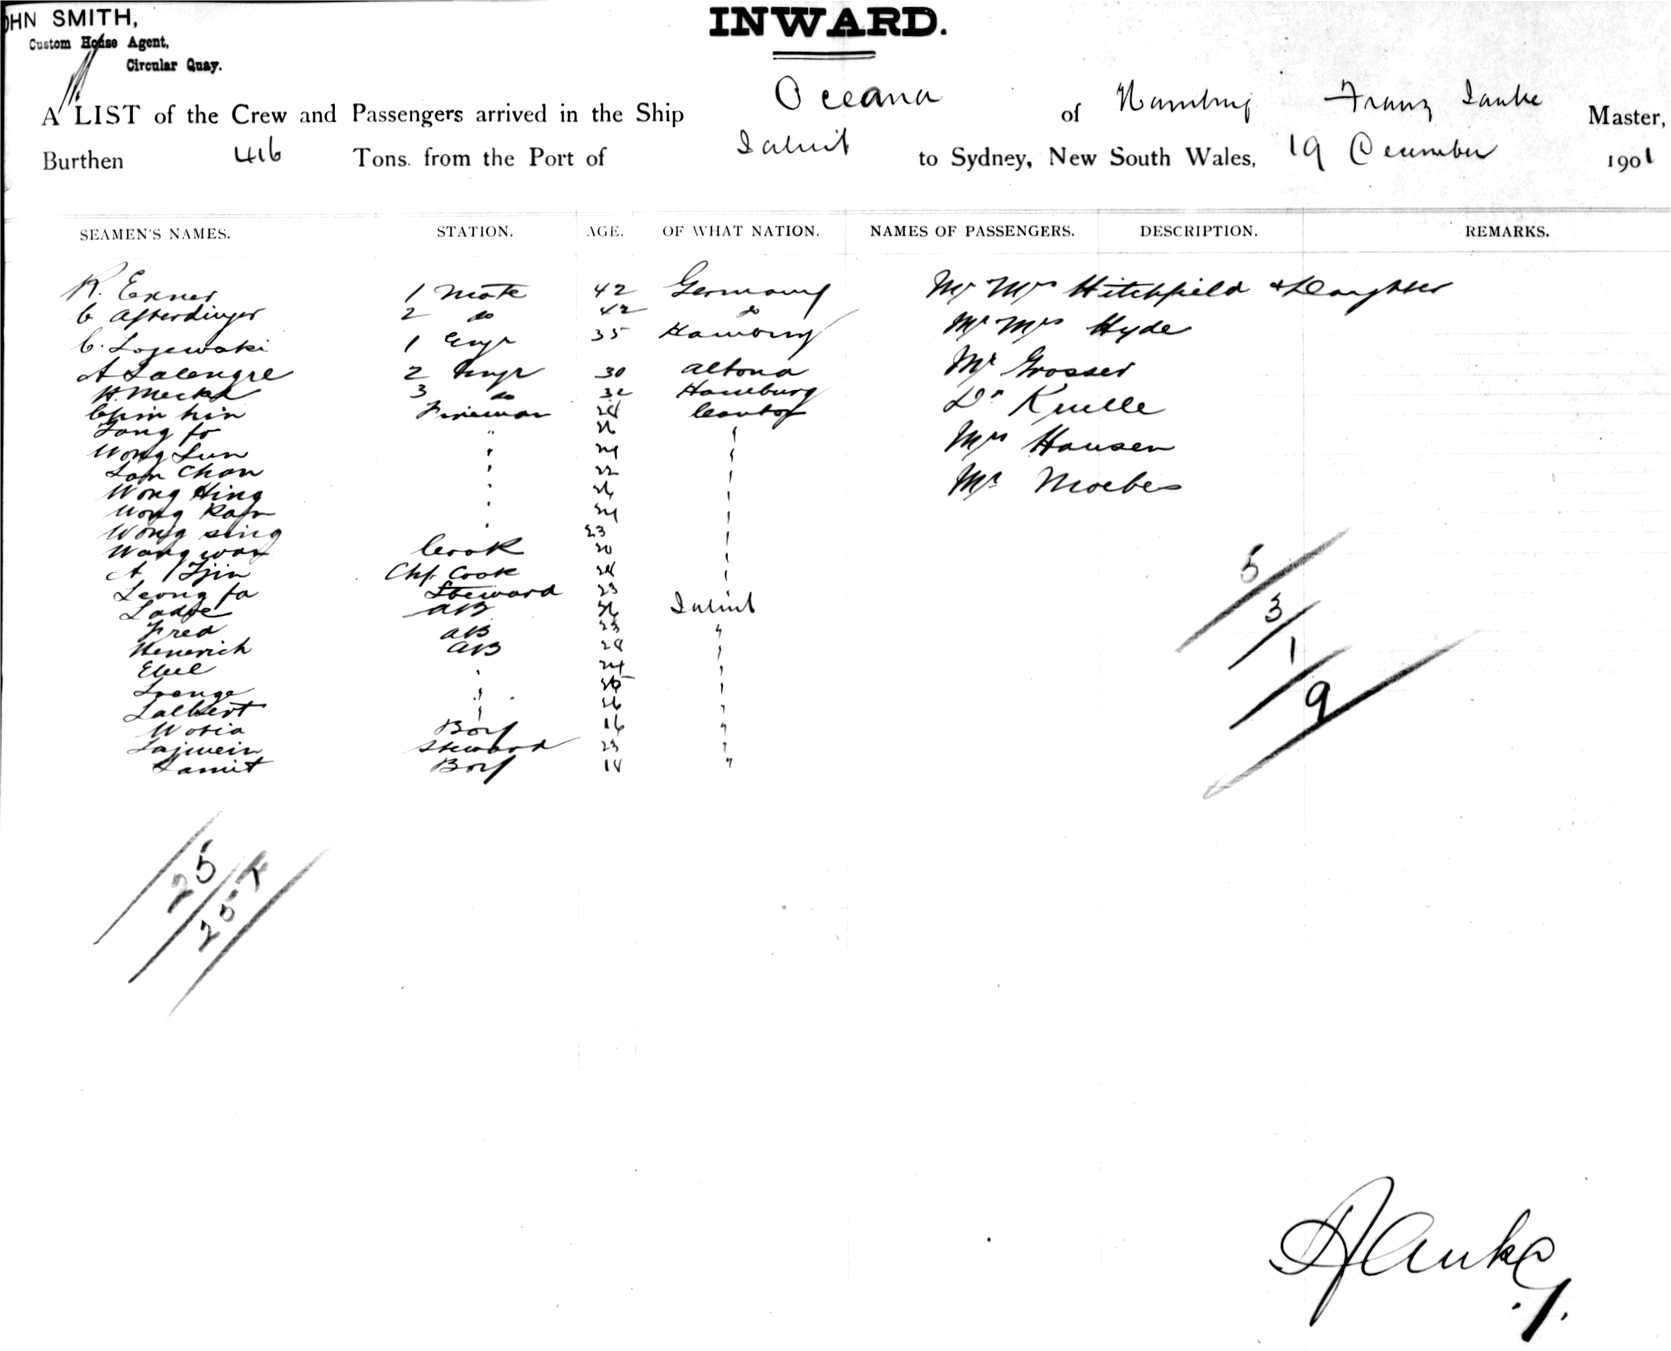 OHN SMITH,
Custom House Agent,
Circular Quay.
INWARD.
A LIST of the Crew and Passengers arrived in the Ship Oceana of Hamburg Franz Janke Master,
Burthen 416 Tons from the Port of Jaluit to Sydney, New South Wales, 19 December 1901
SEAMEN'S NAMES. STATION. AGE. OF WHAT NATION. NAMES OF PASSENGERS. DESCRIPTION. REMARKS.
R. Exner 1 Mate 42 Germany Mr Mrs Hitchfield & Daughter
C Afterdinger 2 do 42 do
C. Lojewski 1 Engr 35 Hamburg Mr Mrs Hyde
A Lalengre 2 Engr 30 Altona Mr Grosser
H. Meckel 3 do 32 Hamburg
Chin hin Fireman 28 Canton Dr
Fong fo " 26 "
Wong Sun " 24 " Mrs Hansen
Lam Chan " 22 "
Wong Hing " 26 " Mr Moebes
Wong " 24 "
Wong sing " 23 "
Wong wan Cook 20 "
A Tjin Chf. Cook 28 "
Leong fa Steward 23 "
Ladje AB 26 Jaluit
Fred AB 23 "
Henerich AB 28 "
Ebel " 24 "
" "
Lalbert " 26 "
Boy 16 "
Lajwein Steward 23 "
Lamit Boy 18 "
5
3
1
9
25
25
FJanke